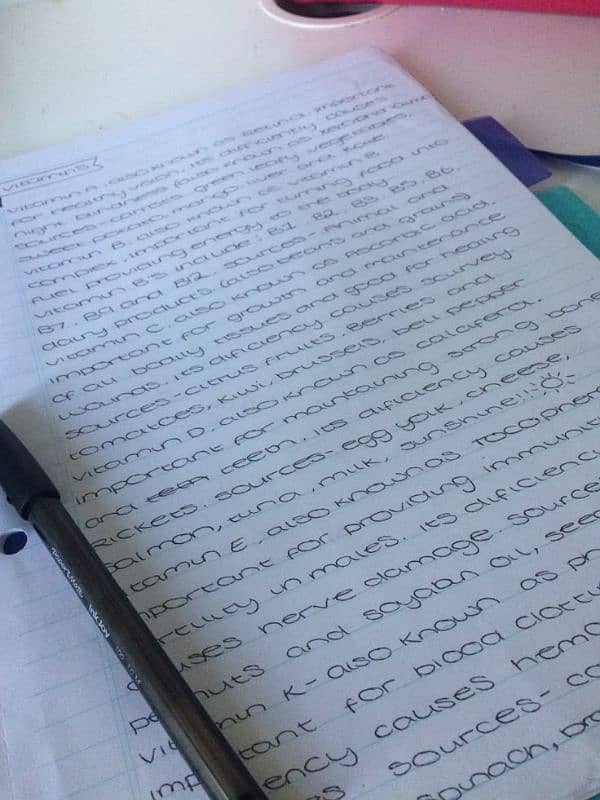 VITAMINS
Vitamin A. also known as Retinal important
for healthy vision. its difficiently causes
night Blindness (also known as xerophthalmia
sources- carrots, green leafy vegetables.
sweet potato, mango. liver and
vitamin B. also known as vitamin B.
complex. important for turning food into
fuel providing energy to the body
vitamin B's include: B1. B2. B3. B5. B6.
B7. B9 and B12. sources- Animal and
dairy products. (also beans and
vitamin C. also known as Ascorbic acid.
important for growth and maintenance
of all bodily tissues and good for healing
wounds. its dificiency causes scurvey
sources-citrus fruits. Berries and
tomatoes, kiwi, brussels. bell pepper
vitamin D. also known as calciferol.
important for maintaining strong bone
and teeth. its dificiency causes
Rickets. sources- egg yolk. cheese,
salmon, tuna, milk, sunshine!!
tamin E. also known as Tocophero
portant for providing immunit
rtility in males. its dificiency
uses nerve damage. sources
nuts and soyabn oil, see
vit min K- also known as p
imp tant for blood clottin
ency causes hemo
. sources- ca
spinach, bro
PaperMate InkJoy